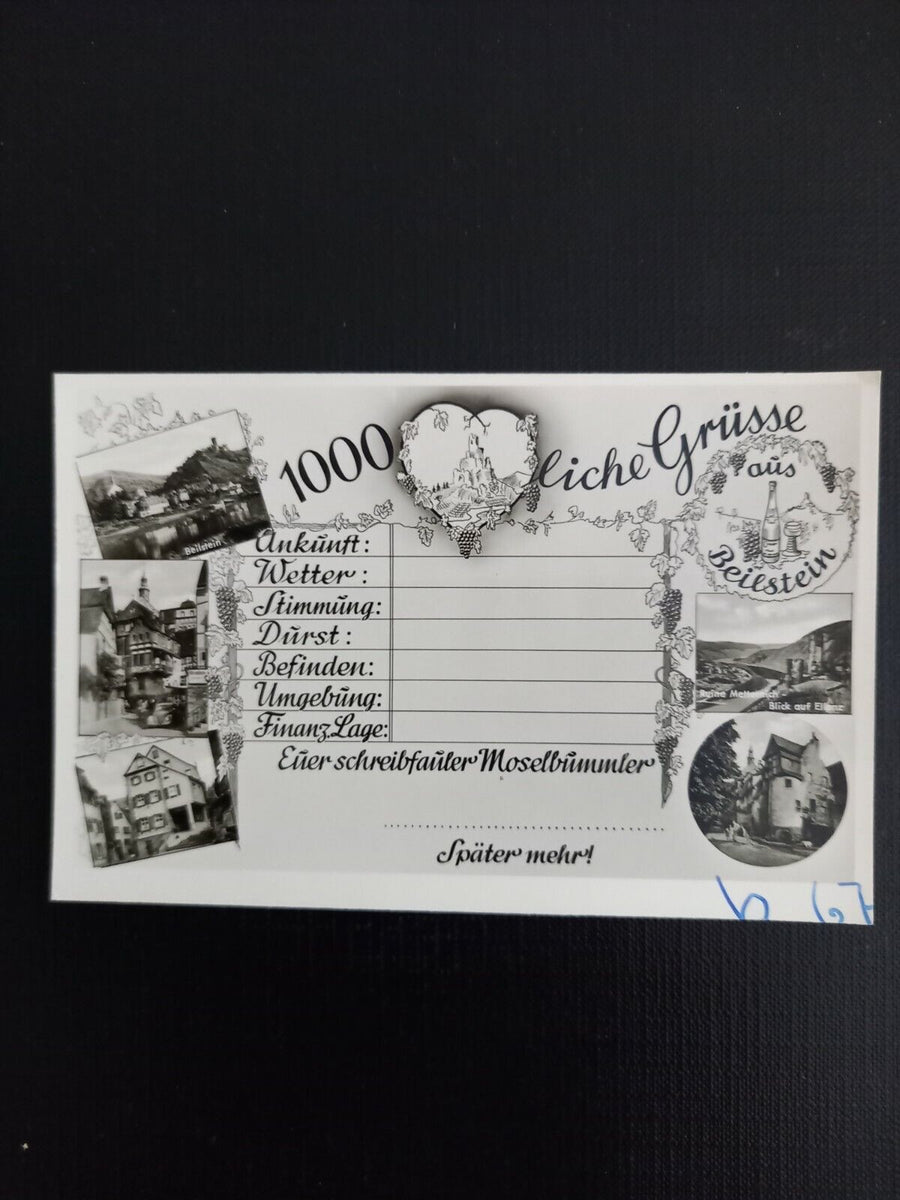 1000 liche Grüsse
aus
Beilstein
Beilstein
Ankunft:
Wetter:
Stimmung:
Durst:
Befinden:
Umgebung:
Finanz Lage:
Euer schreibfauler Moselbummler
Später mehr!
Ruine Metternich -
Blick auf Ellenz
b 67